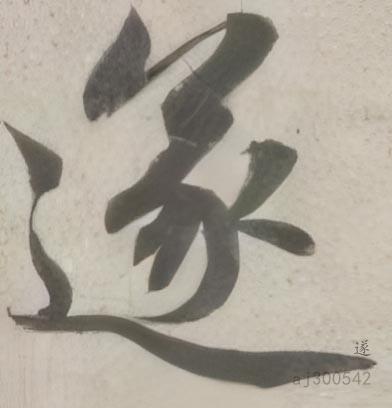 遂
遂
aj300542